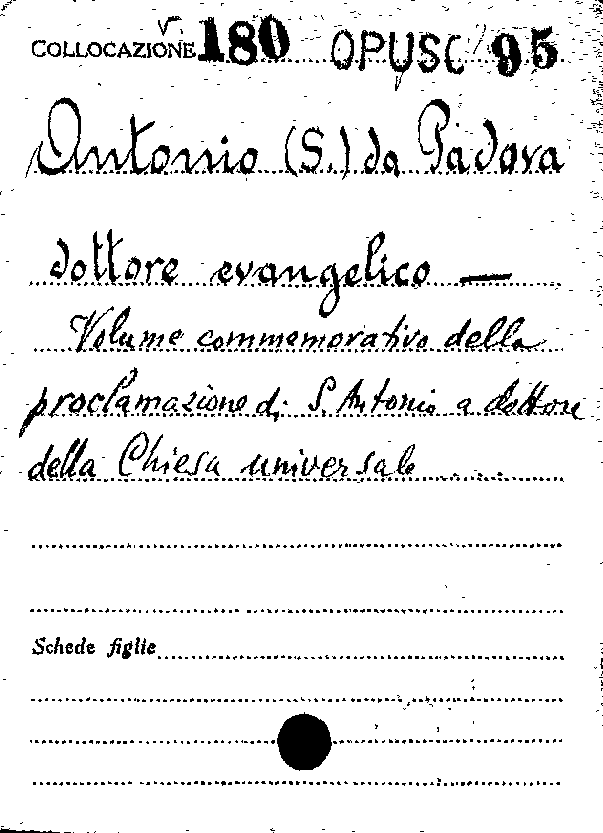 COLLOCAZIONE 180 OPUSC 95
Antonio (S.) da Padova
dottore evangelico —
Volume commemorativo della
proclamazione di S. Antonio a dottore
della Chiesa universale
Schede figlie